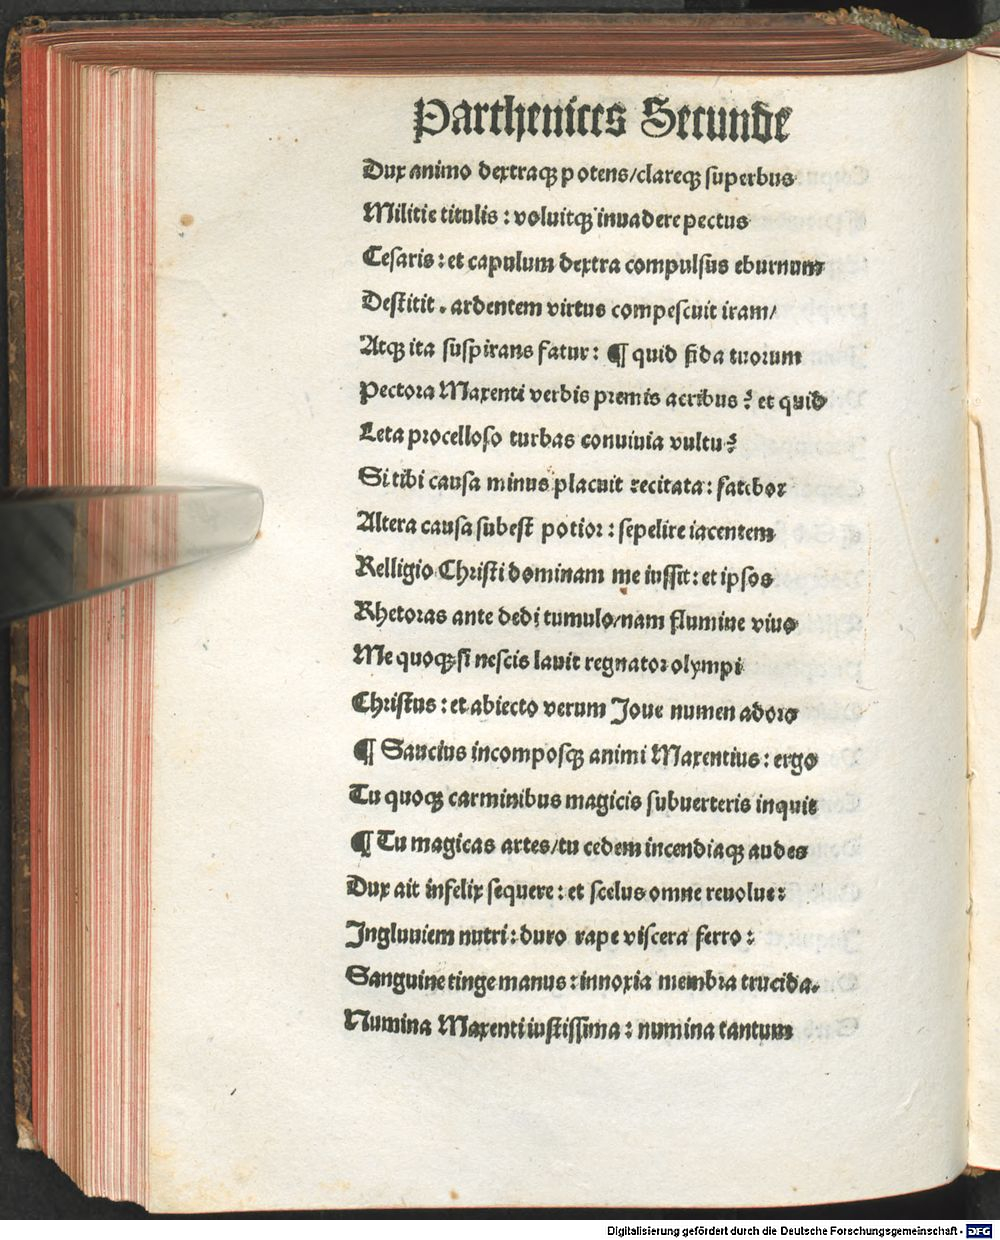 Parthenices Secunde
Dux animo dextraqꝫ potens/clareqꝫ superbus
Militie titulis: voluitqꝫ inuadere pectus
Cesaris: et capulum dextra compulsus eburnum
Destitit. ardentem virtus compescuit iram/
Atqꝫ ita suspirans fatur: ¶ quid fida tuorum
Pectora Maxenti verbis premis acribus? et quid
Leta procelloso turbas conuiuia vultu?
Si tibi causa minus placuit recitata: fatebor
Altera causa subest potior: sepelire iacentem
Relligio Christi dominam me iussit: et ipsos
Rhetoras ante dedi tumulo/nam flumine viuo
Me quoqꝫ si nescis lauit regnator olympi
Christus: et abiecto verum Joue numen adoro
¶ Saucius incomposqꝫ animi Maxentius: ergo
Tu quoqꝫ carminibus magicis subuerteris inquit
¶ Tu magicas artes/tu cedem incendiaqꝫ audes
Dux ait infelix sequere: et scelus omne reuolue:
Ingluuiem nutri: duro rape viscera ferro:
Sanguine tinge manus: innoxia membra trucida.
Numina Maxenti iustissima: numina tantum
Digitalisierung gefördert durch die Deutsche Forschungsgemeinschaft - DFG